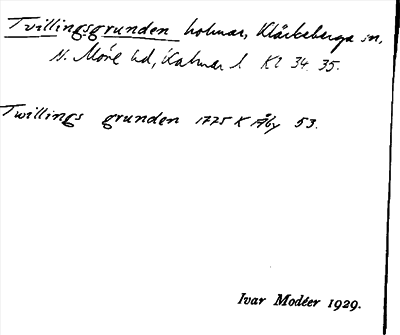 Tvillingsgrunden holmar, Kläckeberga sn,
N. Möre hd, Kalmar l. Kl 34 35.
Twillings grunden 1775 K Åby 53.
Ivar Modéer 1929.